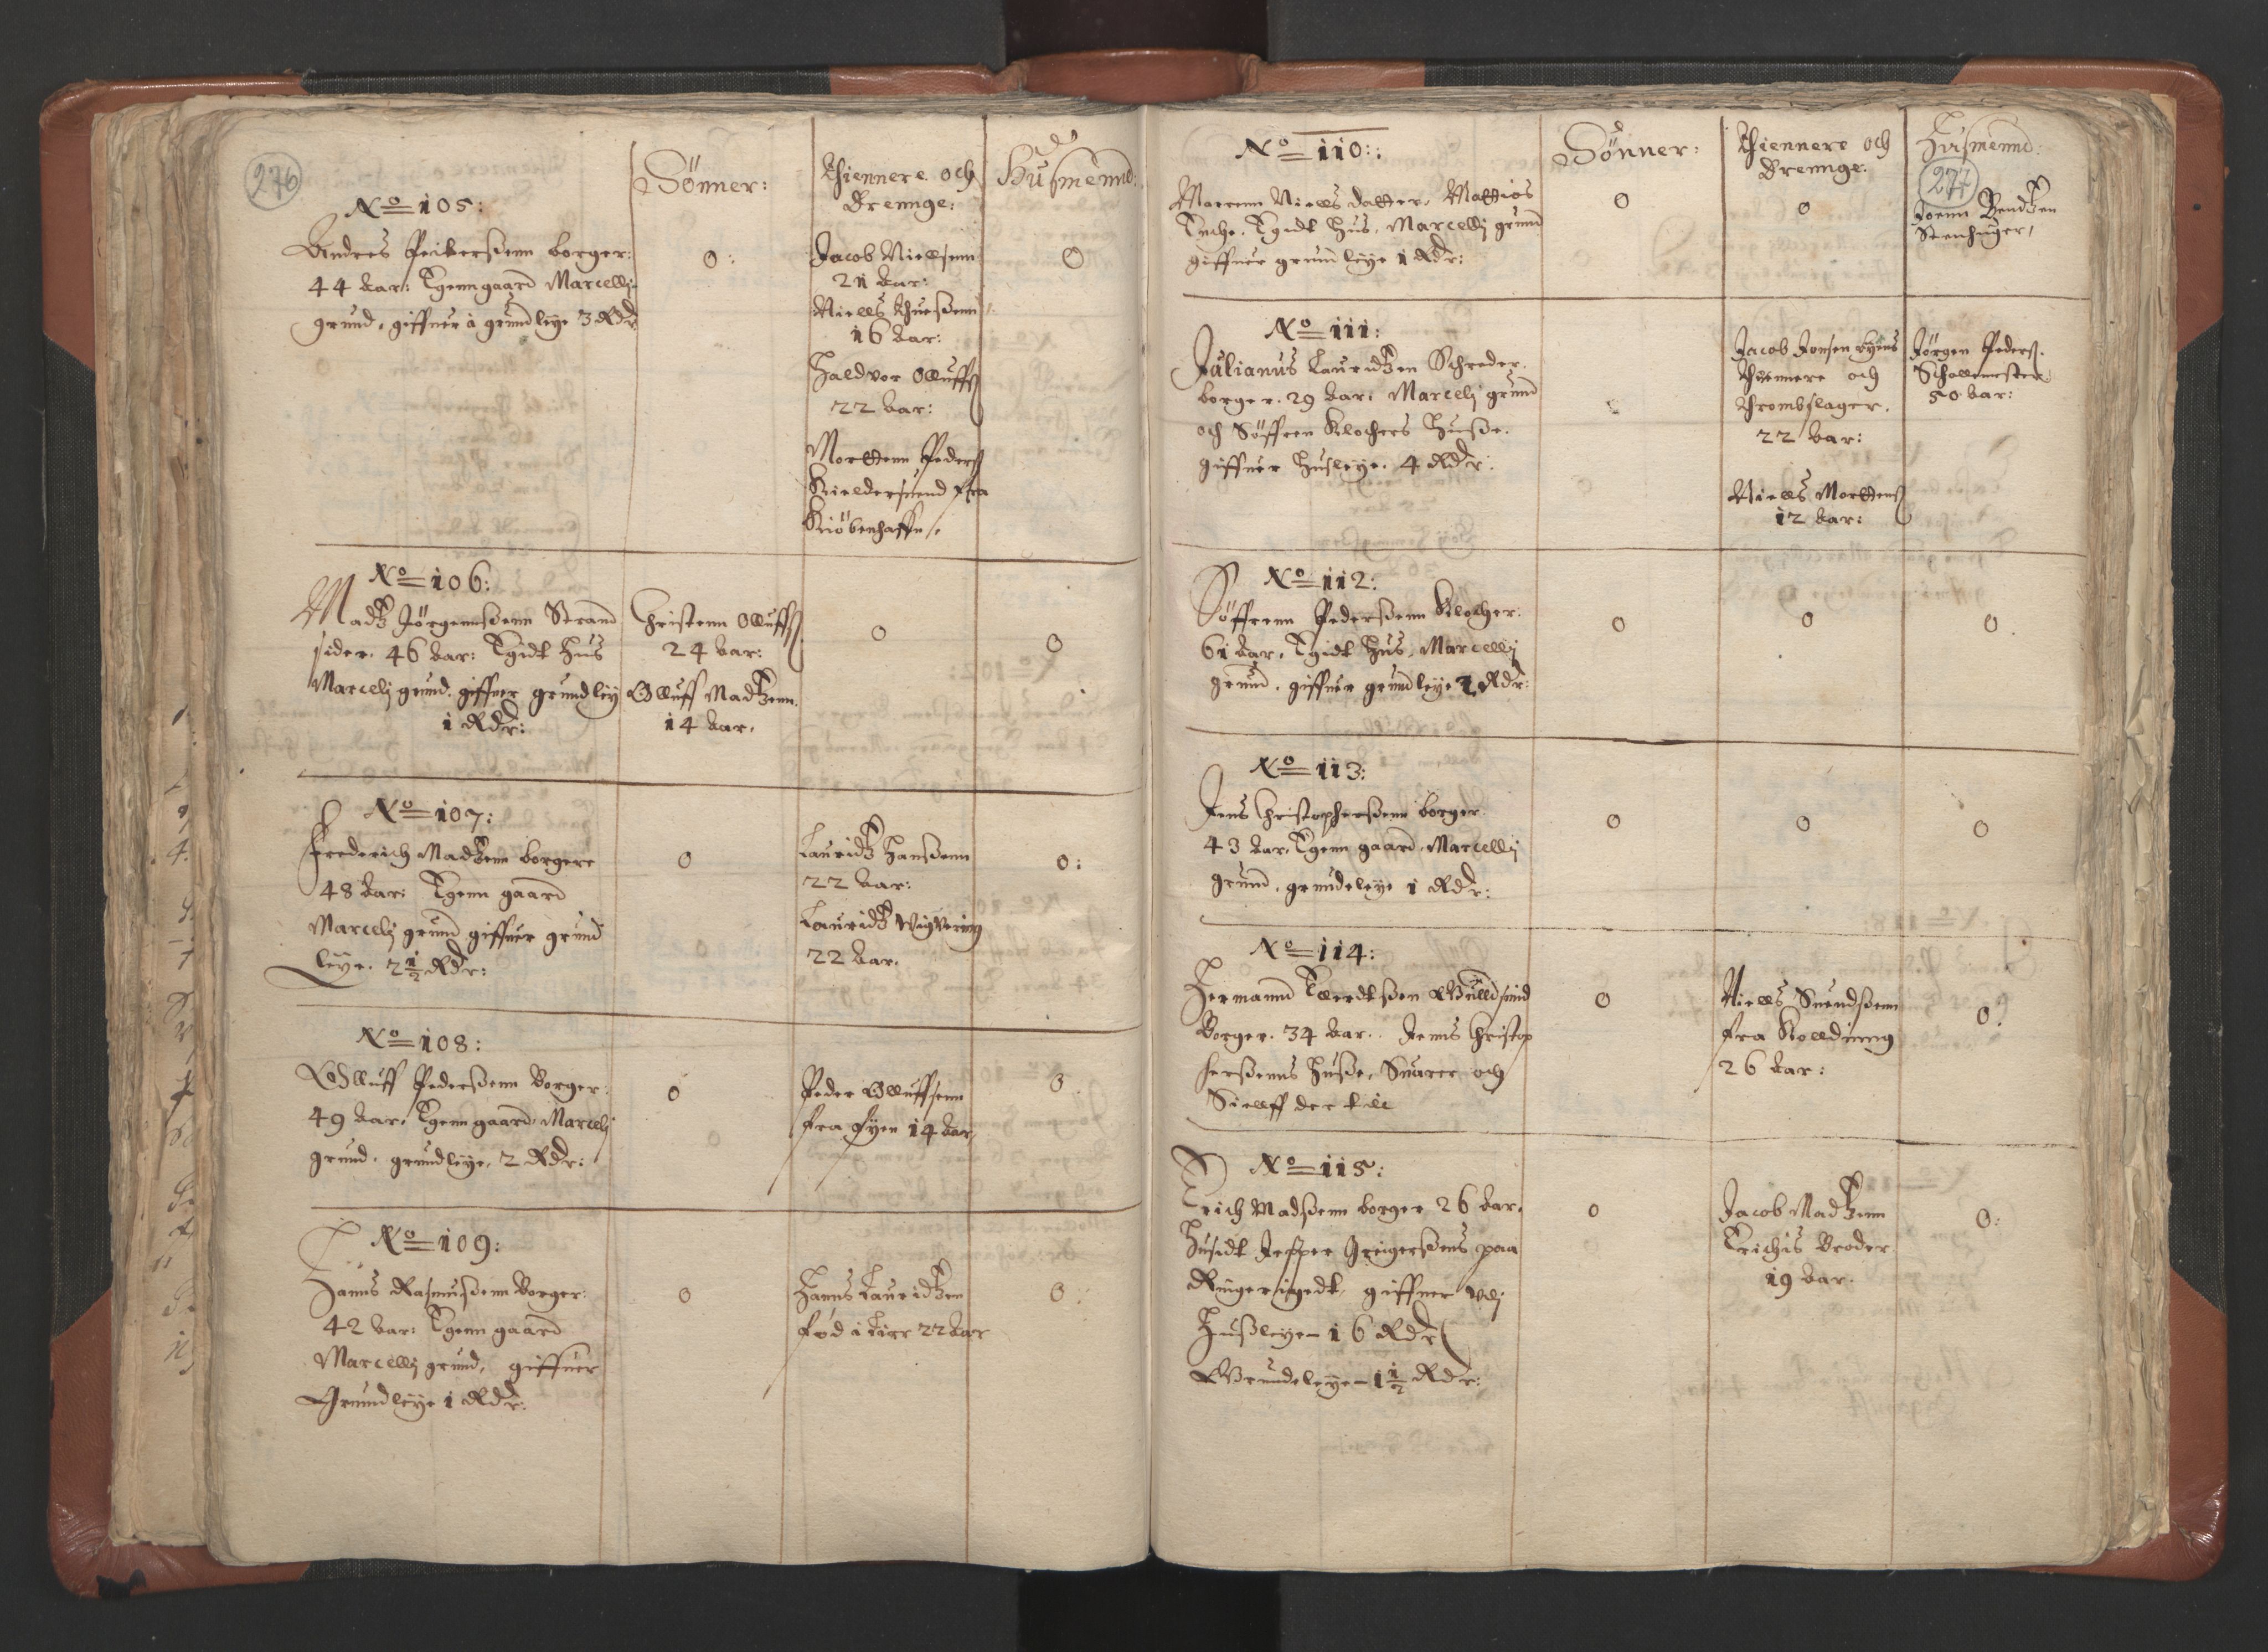 276
Sönner:
Thiennere och
Drennge:
Husmennd:
No 105:
Anndres Peitersßenn borger:
44 Aar: Egenn gaard Marcellj
grund, giffuer i grundleye 3 Rdr
0:
Jacob Niellsenn
21 Aar:
Niells Thuersßenn
16 Aar:
Haldvor Olluffß
22 Aar:
Morttenn Pederß
Kieldersuend fra
Kiöbenhaffn
0
No 106:
Madtz Jörgennsßenn Strand
sider. 46 Aar: Egidt Huus
Marcelj grund. giffuer grundley
1 Rdr:
Christenn Olluffß
24 Aar:
Olluff Madtzenn.
14 Aar.
0
0
No 107:
Frederich Madtzenn borgere
48 Aar: Egenn gaard
Marcelj grund giffuer grund
leye. 2 1/2 Rdr:
0
Lauridtz Hanßenn
22 Aar:
Lauridtz Wigvering
22 Aar.
0:
No 108:
Olluff Pedersßenn Borger:
49 Aar, Egenn gaard, Marcelj
grund. grundleye, 2 Rdr:
0
Peder Olluffsenn
fra Fyen 14 Aar
0
No 109:
Hanns Rasmusßenn Borger:
42 Aar: Egenn gaard
Marcellj grund, giffuer
Grundleye 1 Rdr:
0
Hanns Lauridtzen
fød i Lier 22 Aar
0
277
No 110:
Sönner:
Thiennere och
Drennge:
Husmennd:
Marenn Niells datter, Mattios
Encke. Egidt Huus, Marcellj grund
giffuer grundleye 1 Rdr:
0
0
Joenn Bendtzen
Stenhuger,
No 111:
Julianus Lauridtzen Schreder.
borger. 29 Aar: Marcelj grund
och Söffren Klochers Huuse.
giffuer Husleye. 4 Rdr:
Jacob Jonsen byens
Thiennere och
Trombslager.
22 Aar:
Niells Morttenß
12 Aar:
Jörgen Pederß.
Schollemester
50 Aar:
No 112:
Söffrenn Pedersßenn Klocher:
61 Aar. Egidt Huus, Marcellj
grund. giffuer grundleye 1 Rdr:
0
0
0
No 113:
Jens Christophersßenn borger
43 Aar. Egenn gaard. Marcellj
grund, grundeleye 1 Rdr:
0
0
0
No 114:
Hermannd Evertsßen Gulldsmid
Borger. 34 Aar. Jenns Christop
hersßenns Huuse, Suarer och
Siellff der till
0
Niells Suendsßenn
fra Kolldinng
26 Aar:
0
No 115:
Erich Madsßenn borger 26 Aar.
Huusidt Jesper Greigersßens paa
Ringerigedt, giffuer
Husleye 16 Rdr
Grundeleye 1 1/2 Rdr:
0
Jacob Madtzenn
Erichs Broder
19 Aar.
0: